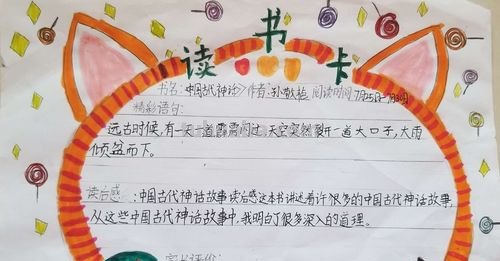 读书卡
书名:中国古代神话》作者:孙敬艳 阅读时间7月25日-7月30日
精彩语句:
远古时候,有一天一道霹雳闪过,天空突然裂开一道大口子,大雨
倾盆而下。
读后感:中国古代神话故事读后感这本书讲述着许很多的中国古代神话故事,
从这些中国古代神话故事中,我明白了很多深入的道理。